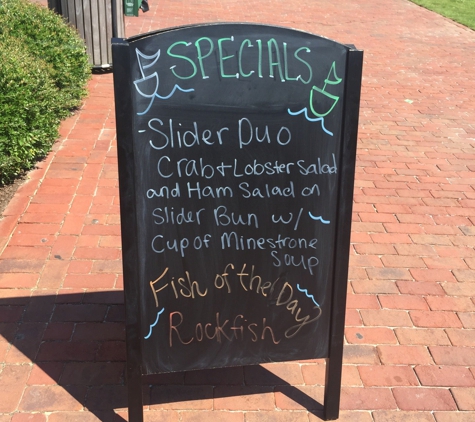 SPECIALS
-Slider Duo
Crab + Lobster Salad
and Ham Salad on
Slider Bun w/
Cup of Minestrone
Soup
Fish of the Day
Rockfish